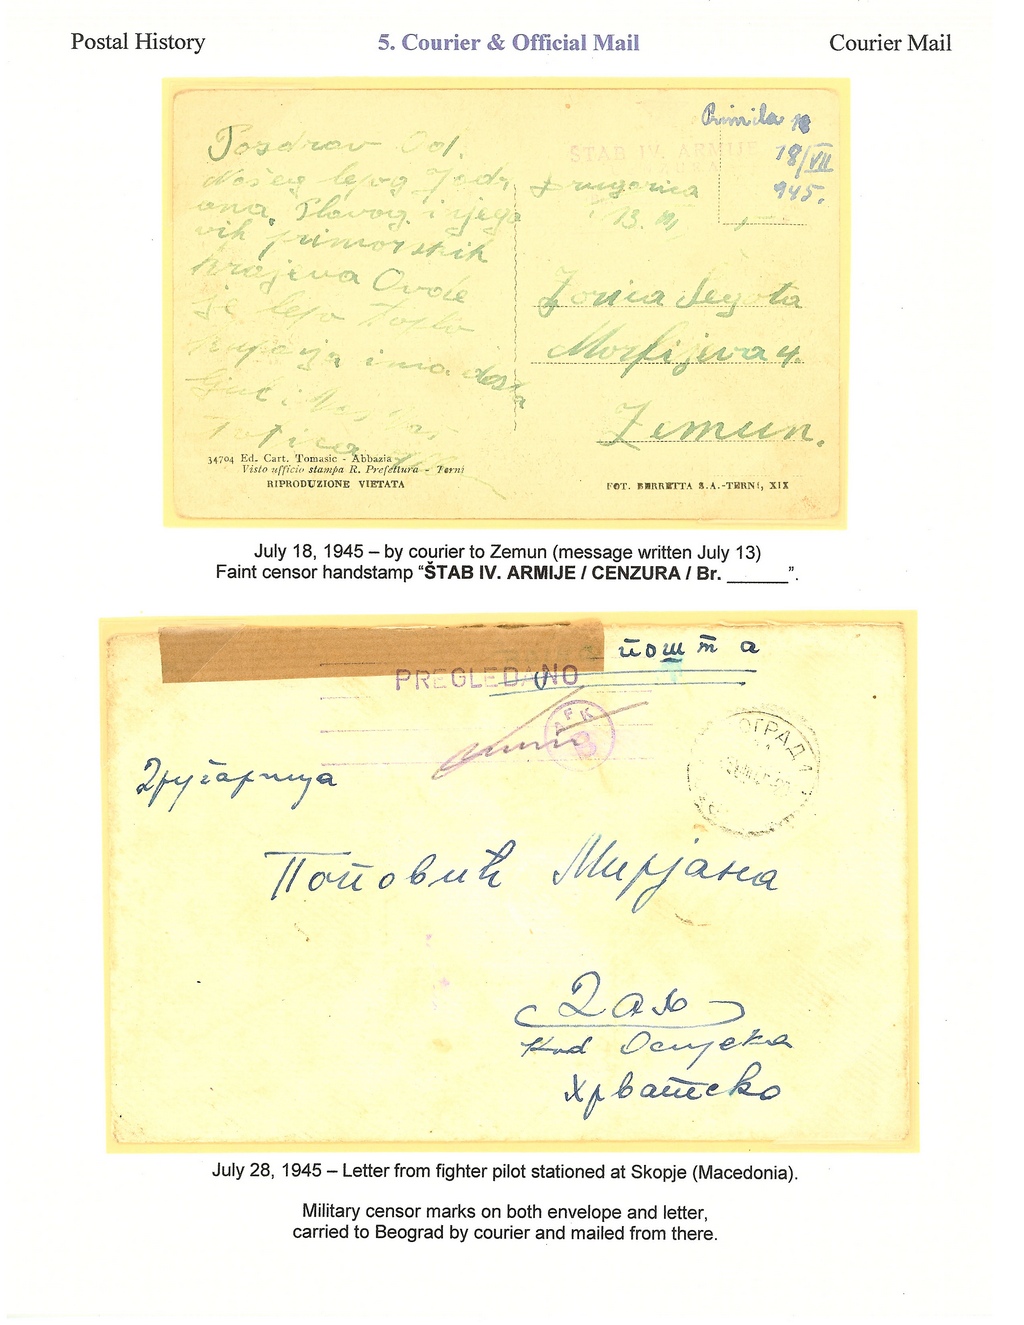 Postal History
5. Courier & Official Mail
Courier Mail
Primila
18/VII
945.
ŠTAB IV. ARMIJE
Pozdrav Od.
Našeg lepog Jadr
ana, Plavog i njego
vih primorskih
krajeva Ovde
je lepo toplo
kupanja ima dosta
Drugarica
13. VII
Zorica Šegota
4.
Zemun.
34704 Ed. Cart. Tomasic - Abbazia
Visto ufficio stampa R. Prefettura - Terni
RIPRODUZIONE VIETATA
FOT. BERRETTA S.A.-TERNI, XIX
July 18, 1945 – by courier to Zemun (message written July 13)
Faint censor handstamp “ŠTAB IV. ARMIJE / CENZURA / Br. ______”.
пошта
PREGLEDANO
АРК
В
ОГРАД
Другарица
Поповић Мирјана
Даљ
Код Осијека
Хрватско
July 28, 1945 – Letter from fighter pilot stationed at Skopje (Macedonia).
Military censor marks on both envelope and letter,
carried to Beograd by courier and mailed from there.